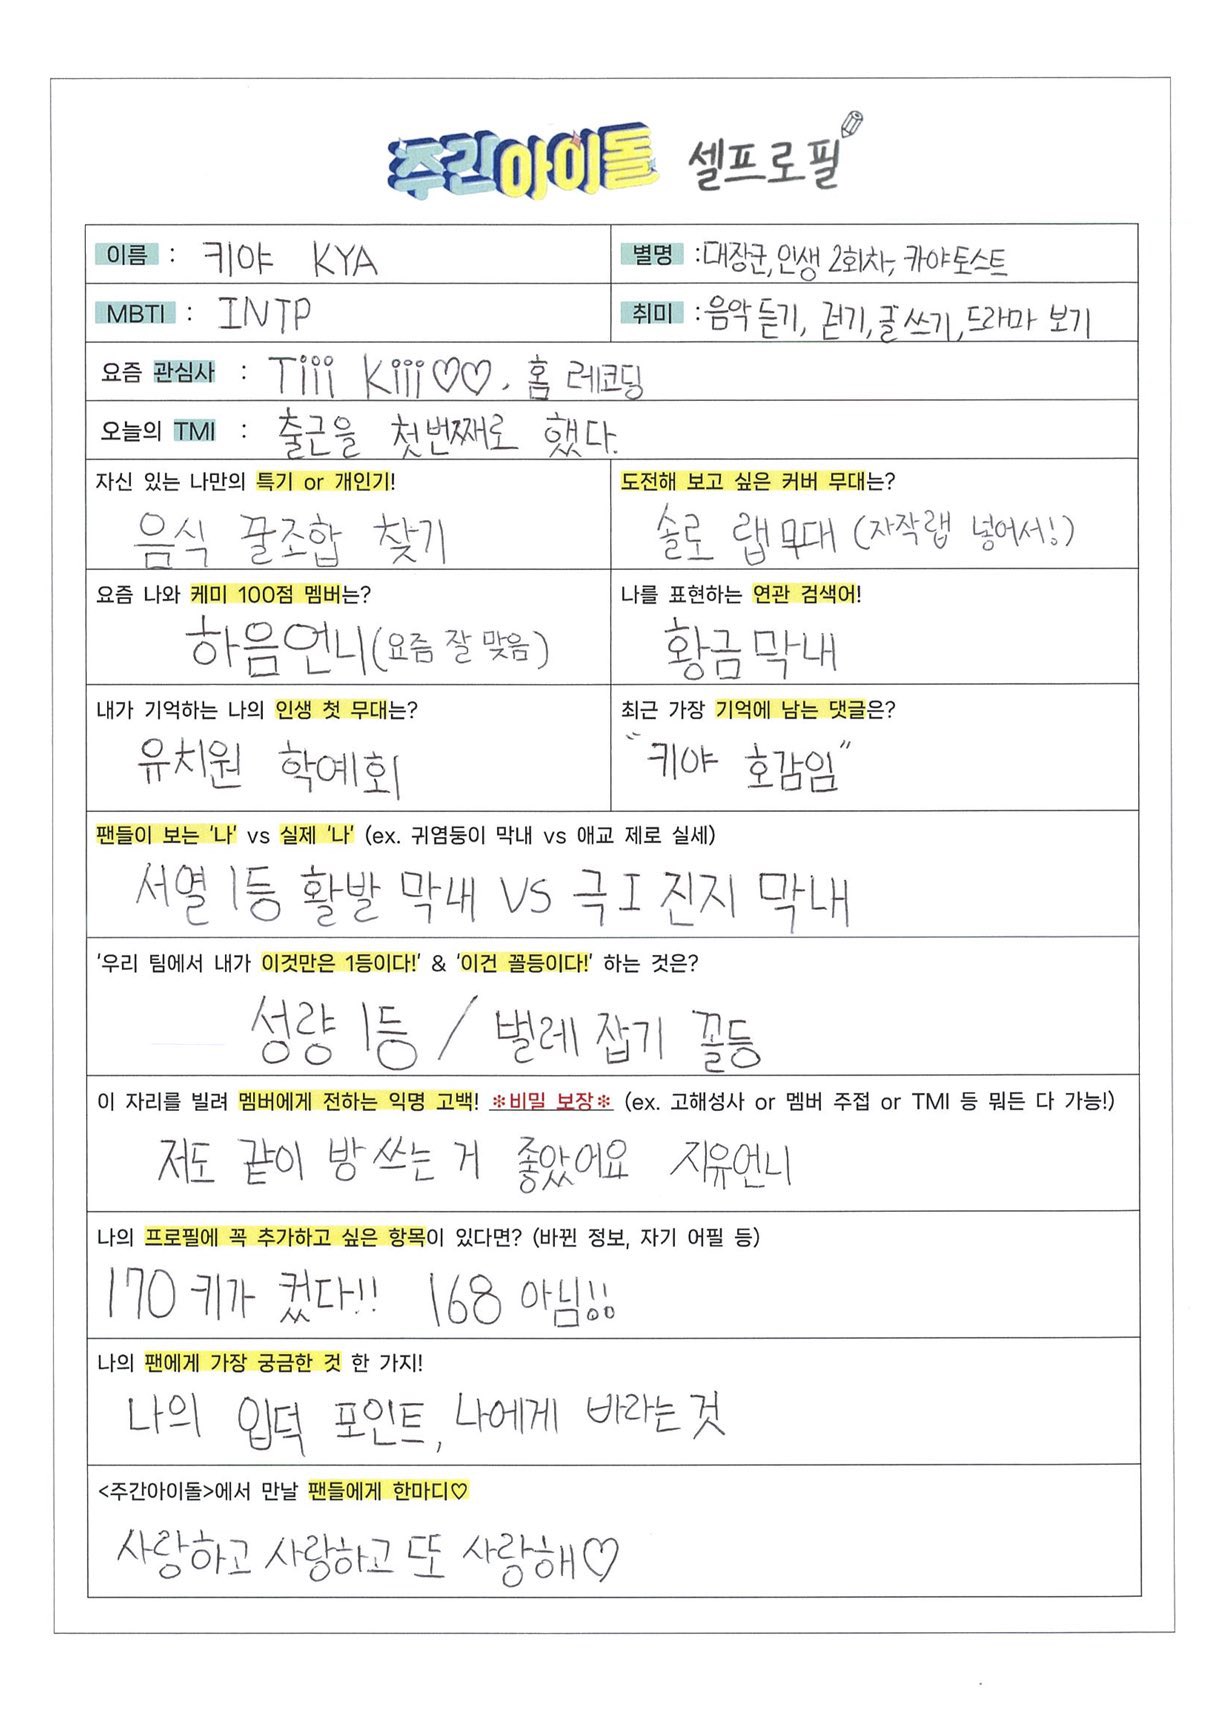 주간아이돌 셀프로필
이름 : 키야 KYA
별명 : 대장군, 인생 2회차, 카야토스트
MBTI : INTP
취미 : 음악 듣기, 걷기, 글쓰기, 드라마 보기
요즘 관심사 : Tiii Kiii♡♡, 홈 레코딩
오늘의 TMI : 출근을 첫번째로 했다.
자신 있는 나만의 특기 or 개인기!
음식 꿀조합 찾기
도전해 보고 싶은 커버 무대는?
솔로 랩 무대 (자작랩 넣어서!)
요즘 나와 케미 100점 멤버는?
하음언니(요즘 잘 맞음)
나를 표현하는 연관 검색어!
황금막내
내가 기억하는 나의 인생 첫 무대는?
유치원 학예회
최근 가장 기억에 남는 댓글은?
"키야 호감임"
팬들이 보는 '나' vs 실제 '나' (ex. 귀염둥이 막내 vs 애교 제로 실세)
서열 1등 활발 막내 VS 극 I 진지 막내
'우리 팀에서 내가 이것만은 1등이다!' & '이건 꼴등이다!' 하는 것은?
성량 1등 / 벌레 잡기 꼴등
이 자리를 빌려 멤버에게 전하는 익명 고백! *비밀 보장* (ex. 고해성사 or 멤버 주접 or TMI 등 뭐든 다 가능!)
저도 같이 방 쓰는 거 좋았어요 지유언니
나의 프로필에 꼭 추가하고 싶은 항목이 있다면? (바뀐 정보, 자기 어필 등)
170 키가 컸다!! 168 아님!!
나의 팬에게 가장 궁금한 것 한 가지!
나의 입덕 포인트, 나에게 바라는 것
<주간아이돌>에서 만날 팬들에게 한마디♡
사랑하고 사랑하고 또 사랑해♡